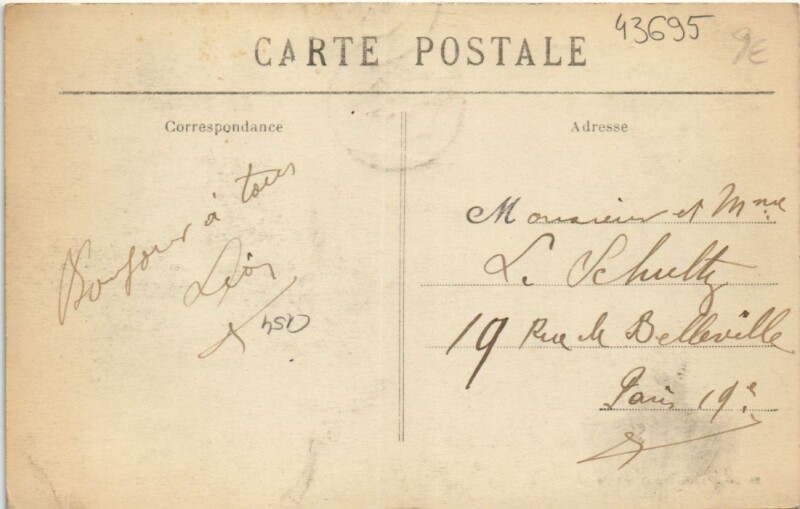 43695
9€
CARTE POSTALE
Correspondance
Adresse
Bonjour à tous
Léon
Monsieur et Mme
L. Schultz
19 Rue de Belleville
Paris 19e